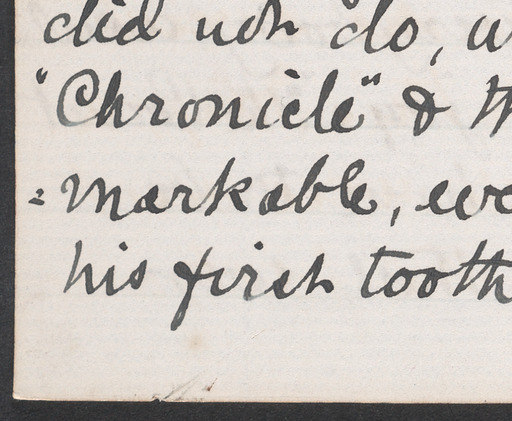 did not do, w
"Chronicle" & th
=markable, eve
his first tooth